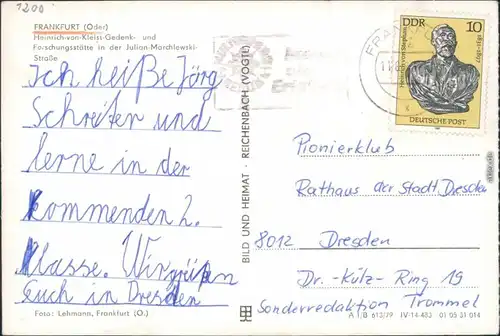 1200
FRANKFURT (Oder)
Heinrich-von-Kleist-Gedenk- und
Forschungsstätte in der Julian-Marchlewski-
Straße
Ich heiße Jörg
Schreiter und
lerne in der
kommenden 2.
Klasse. Wir grüßen
Euch in Dresden
Foto: Lehmann, Frankfurt (O.)
BILD UND HEIMAT · REICHENBACH (VOGTL)
FRANKFU
DDR 10
Heinrich von Stephan 1831-1897
DEUTSCHE POST
Pionierklub
Rathaus der Stadt Dresden
8012 Dresden
Dr.-Külz-Ring 19
Sonderredaktion Trommel
A 1 B 613/79 IV-14-483 01 05 31 014